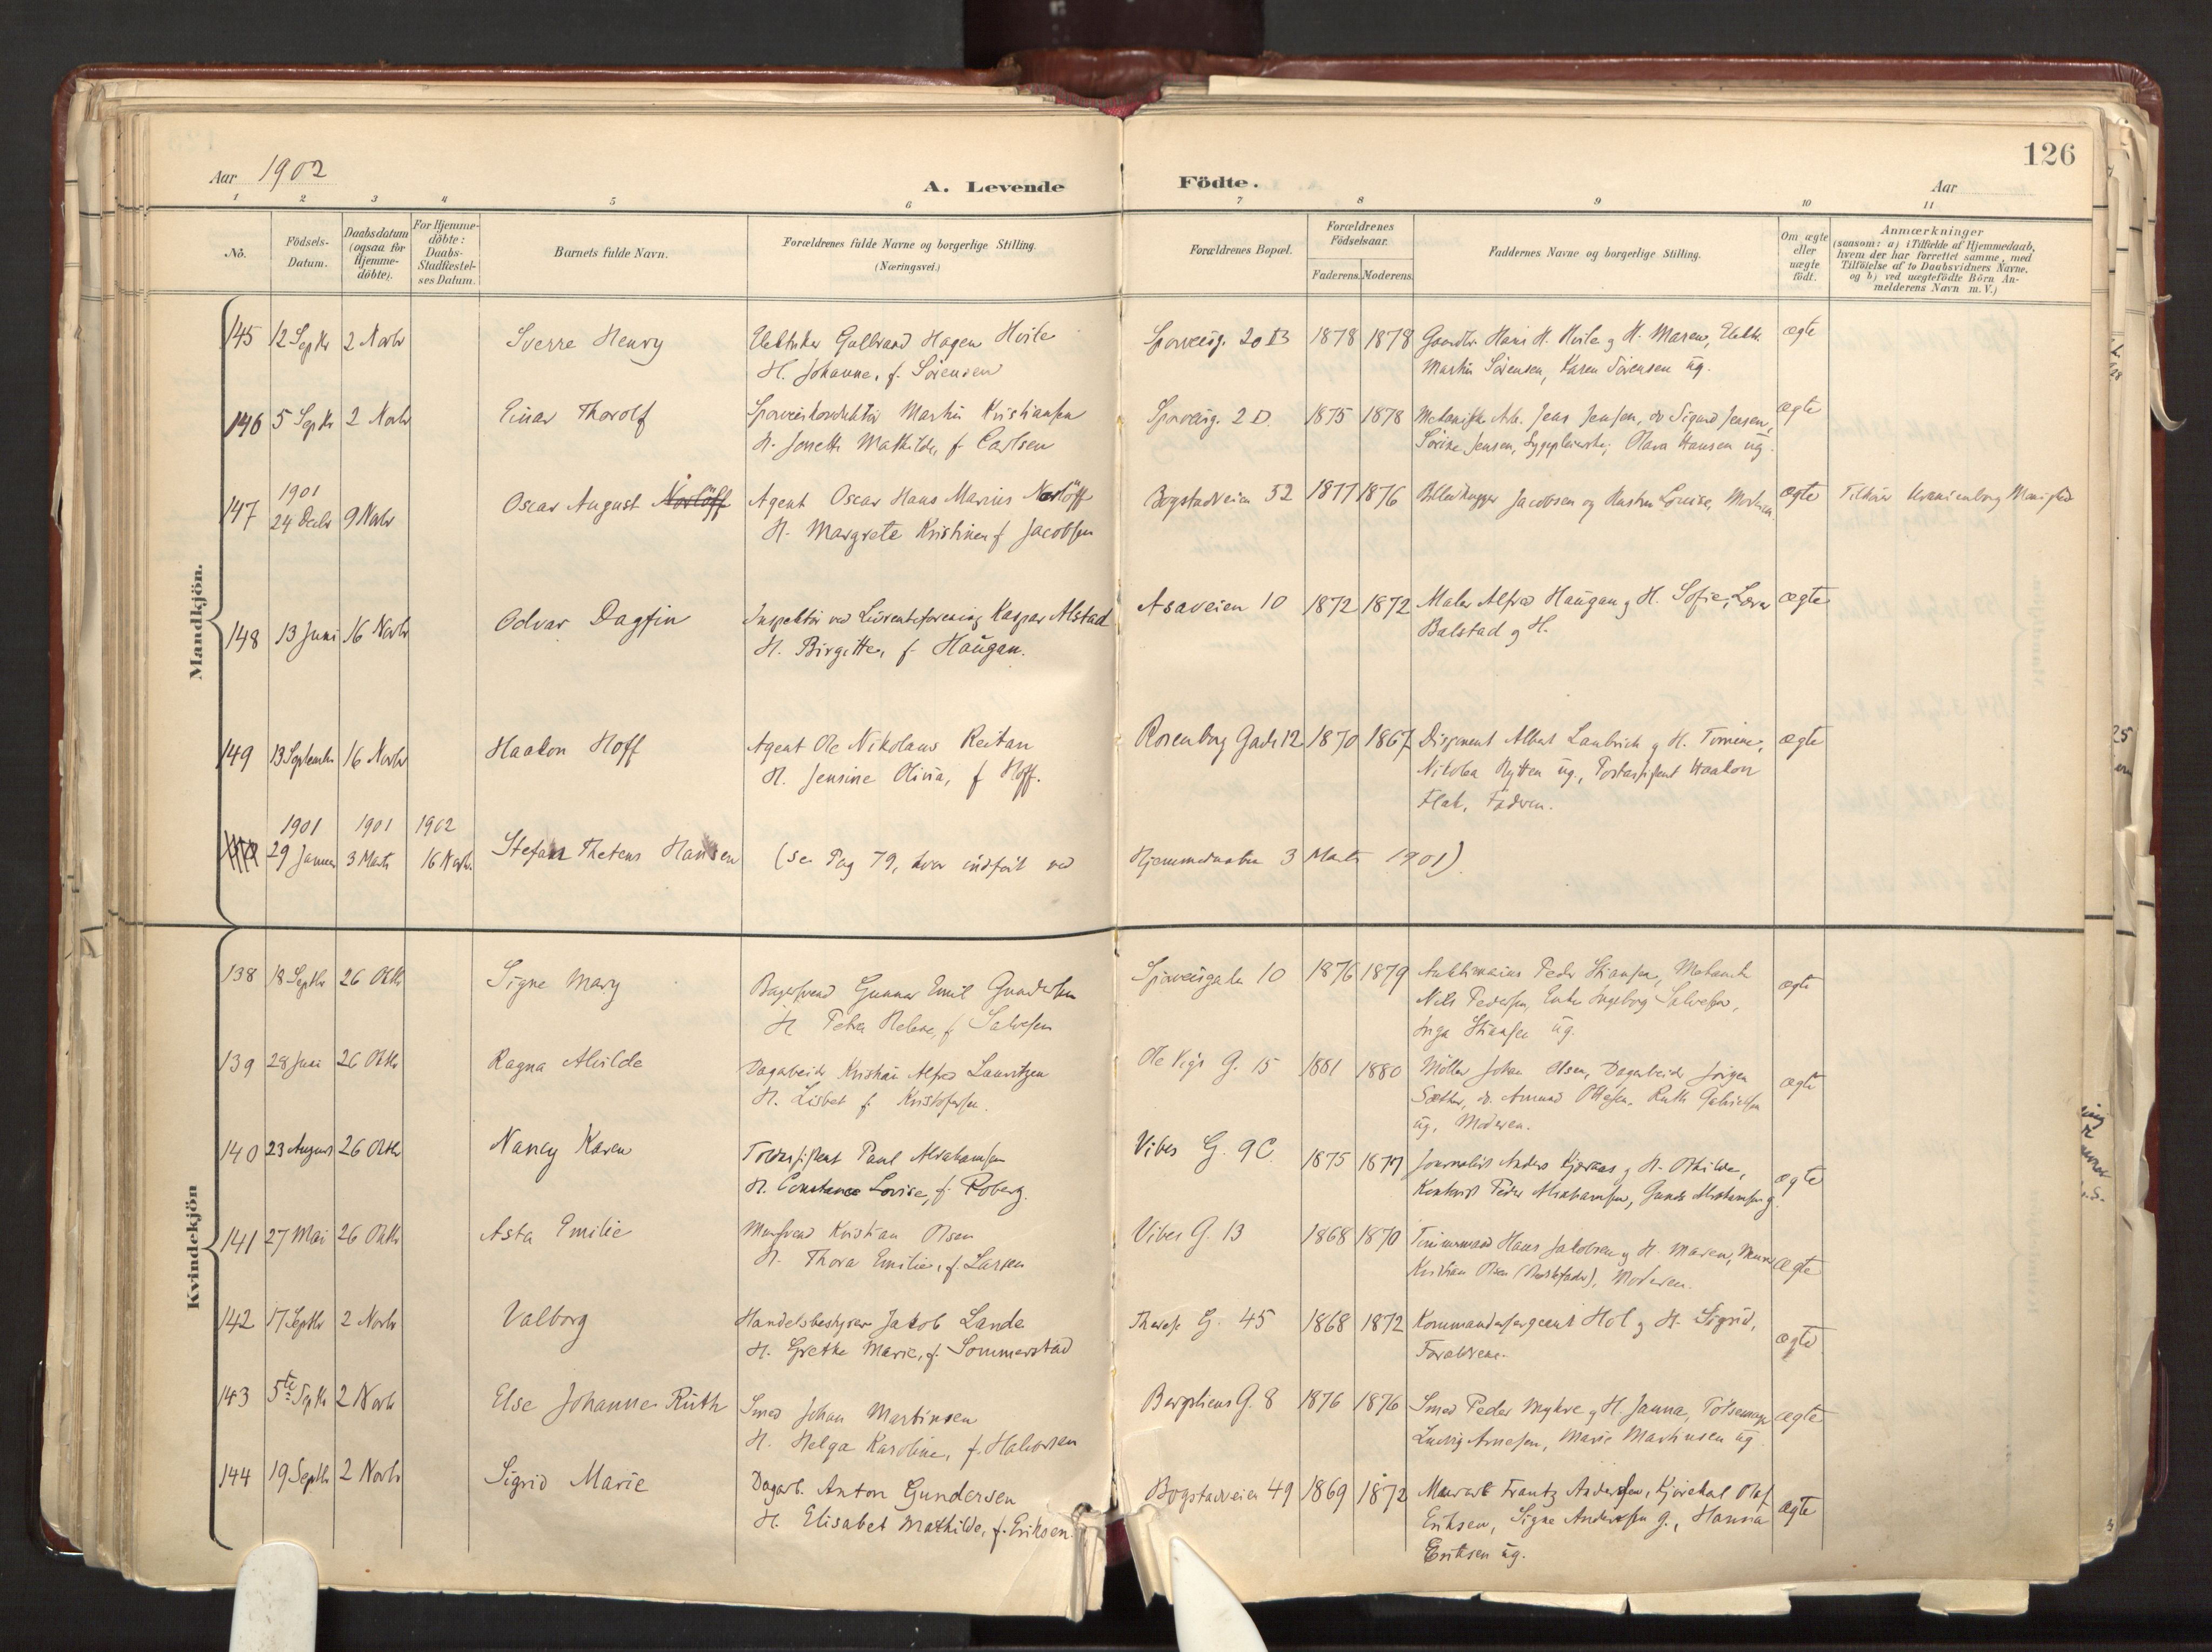 126
Aar 1902
A. Levende Födte.
Aar
1 2 3 4 5 6 7 8 9 10 11
No.
Födsels-Datum.
Daabsdatum (ogsaa for Hjemmedöbte).
For Hjemmedöbte: Daabs-Stadfæstelses Datum.
Barnets fulde Navn.
Forældrenes fulde Navne og borgerlige Stilling.
(Næringsvei.)
Forældrenes Bopæl.
Forældrenes Födselsaar.
Faderens. Moderens.
Faddernes Navne og borgerlige Stilling.
Om ægte eller uægte födt.
Anmærkninger
(saasom: a) i Tilfælde af Hjemmedaab, hvem der har forrettet samme, med Tilföielse af to Daabsvidners Navne, og b) ved uægtefödte Börn Anmelderens Navn m. V.)
Mandkjön.
145 12 Septbr 2 Novbr Sverre Henry Gulbrand Hagen Hvile Sporveisg. 20 B 1878 1878 Hans H. Hvile og H. Maren, Elektr. ægte
H. Johanne, f. Sörensen Martin Sörensen, Karen Sörensen ug.
146 5 Septbr 2 Novbr Einar Thorolf Sporveiskonduktör Martin Kristiansen Sporveisg. 2 D. 1875 1878 Jens Jensen, do Sigurd Jensen, ægte
H. Mathilde, f. Carlsen Jensen, Olava Hansen ug.
147 1901 24 Decbr 9 Novbr Oscar August Norlöff Agent Oscar Hans Marius Norlöff Bogstadveien 52 1877 1876 Jacobsen og Hustru Lovise, ægte Tilhörer Uranienborg Menighed
H. Margrete Kristine f. Jacobsen
148 13 Juni 16 Novbr Odvar Dagfin Inspektör ved Kaspar Alstad Asaveien 10 1872 1872 Maler Alfred Haugan og H. Sofie, Lærer ægte
H. Birgitte, f. Haugan. Balstad og H.
149 13 September 16 Novbr Haakon Hoff Agent Ole Nikolaus Reitan Rosenborg Gade 12 1870 1867 Disponent Albert og H. ægte
H. Jensine Olivia, f Hoff. ug., Haakon
Flak, Faderen.
1901 1901 1902
29 Januar 3 Marts 16 Novbr. Stefan Thetens Hansen (se Pag 79, hvor indfört ved Hjemmedaaben 3 Marts 1901)
Kvindekjön
138 18 Septbr 26 Oktbr Signe Mary Bagersvend Gunnar Emil Gundersen Sporveisgaden 10 1876 1879 Peder ægte
H Petra Helene, f Salvesen Nils Pedersen, Enke Ingeborg Salvesen,
Inga ug.
139 28 Juni 26 Oktbr Ragna Alvilde Dagarbeider Kristian Alfred Lauritzen Ole Vigs G. 15 1881 1880 Möller Johan Olsen, Dagarbeider Jörgen ægte
H. Lisbet f. Kristofersen. Sæther, do. Amund Ottesen, Ruth
ug., Moderen.
140 23 August 26 Oktbr Nancy Karen Toldassistent Paul Abrahamsen Vibes G. 9C. 1875 1877 Journalist Anders Kjærnes og H. ægte
H. Constance Lovise, f. Roberg. Kontorist Peder Abrahamsen, Abrahamsen g.
141 27 Mai 26 Oktbr Asta Emilie Mursvend Kristian Olsen Vibes G. 13 1868 1870 Tömmermand Hans Jakobsen og H. Maren, Murer ægte
H. Thora Emilie, f. Larsen Kristian Olsen, Moderen.
142 17 Septbr 2 Novbr Valborg Handelsbestyrer Jakob Lande Therese G. 45 1868 1872 Kommandersergeant Hol og H. Sigrid, ægte
H. Grethe Marie, f. Sommerstad Forældrene.
143 5te Septbr 2 Novbr Else Johanne Ruth Smed Johan Martinsen Bergsliens G. 8 1876 1876 Smed Peder Myhre og H. Janna, Pölsemager ægte
H. Helga Karoline, f. Halvorsen Ludvig Arnesen, Marie Martinsen ug.
144 19 Septbr 2 Novbr Sigrid Marie Dagarb. Anton Gundersen Bogstadveien 49 1869 1872 Murarb. Frantz Andersen, Olaf ægte
H. Elisabet Mathilde, f. Eriksen. Eriksen, Signe Andersen g., Hanna
Eriksen ug.